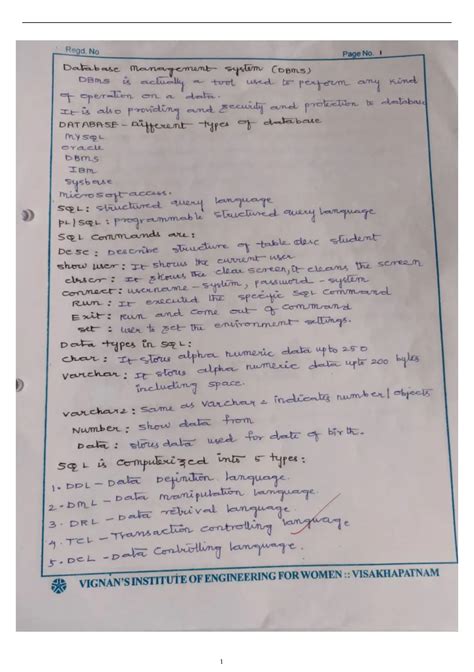 Regd. No
Page No. 1
Database Management System (DBMS)
DBMS is actually a tool used to perform any kind
of operation on a data.
It is also providing and security and protection to database
DATABASE - Different types of database
MYSQL
Oracle
DBMS
IBM
Sysbase
microsoft access.
SQL: Structured query language
PL/SQL: programmable structured query language
SQL Commands are:
Desc: Describe structure of table.desc student
show user: It shows the current user
It shows the clear screen, it cleans the screen
connect: username - system, password - system
Run: It executed the specific SQL Command
Exit: Run and come out of command
set : user to set the environment settings.
Data types in SQL:
char: It stores alpha numeric data upto 250
varchar: It stores alpha numeric data upto 200 bytes
including space.
varchar2: Same as varchar 2 indicates number/objects
Number: show data from
Data: stores data used for date of birth.
SQL is Computerized into 5 types:
1. DDL - Data Definition language.
2. DML - Data manipulation language.
3. DRL - Data retrival language.
4. TCL - Transaction controlling language
5. DCL - Data Controlling language.
VIGNAN'S INSTITUTE OF ENGINEERING FOR WOMEN :: VISAKHAPATNAM
1